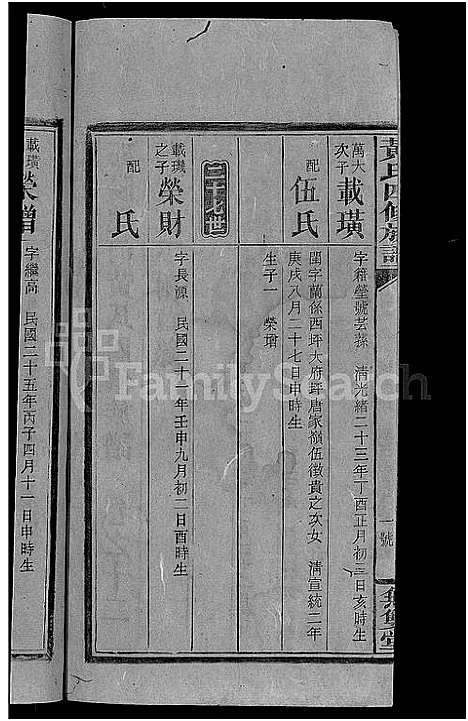 黃氏四修族譜
一號
無雙堂
萬大次子 載璜 字籍瑩號芸蓀 清光緒二十三年丁酉正月初三日亥時生
配 伍氏 閨字蘭係西坪大府玗唐家嶺伍徵貴之次女 清宣統二年
庚戌八月二十七日申時生
生子一 榮璔
載璣之子 榮財 字長源 民國二十一年壬申九月初二日酉時生
配 氏
載璜 榮璔 字繼高 民國二十五年丙子四月十一日申時生
FamilySearch